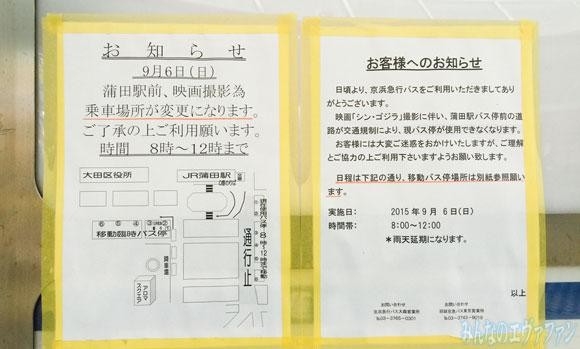 お知らせ
9月6日(日)
蒲田駅前、映画撮影為
乗車場所が変更になります。
ご了承の上ご利用願います。
時間 8時～12時まで
大田区役所
JR蒲田駅
移動臨時バス停
通行止
アロマスクエア
お客様へのお知らせ
日頃より、京浜急行バスをご利用いただきましてあり
がとうございます。
映画「シン・ゴジラ」撮影に伴い、蒲田駅バス停前の道
路が交通規制により、現バス停が使用できなくなります。
お客様には大変ご迷惑をおかけいたしますが、ご理解
とご協力の上ご利用下さいますようお願い致します。
日程は下記の通り、移動バス停場所は別紙参照願い
ます。
実施日: 2015年9月 6日(日)
時間帯: 8:00～12:00
＊雨天延期になります。
以上
お問い合わせ
京浜急行バス大森営業所
お問い合わせ
羽田京急バス東京営業所
みんなのエヴァファン